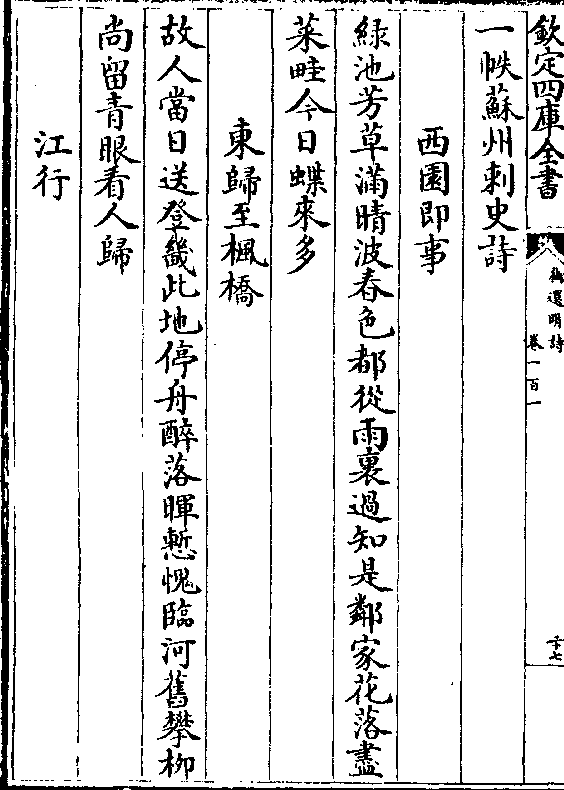 欽定四庫全書
御選明詩
卷一百一
二十七
一帙蘇州刺史詩
西園即事
綠池芳草滿晴波春色都從雨裏過知是鄰家花落盡
菜畦今日蝶來多
東歸至楓橋
故人當日送登畿此地停舟醉落暉慙愧臨河舊攀柳
尚留青眼看人歸
江行